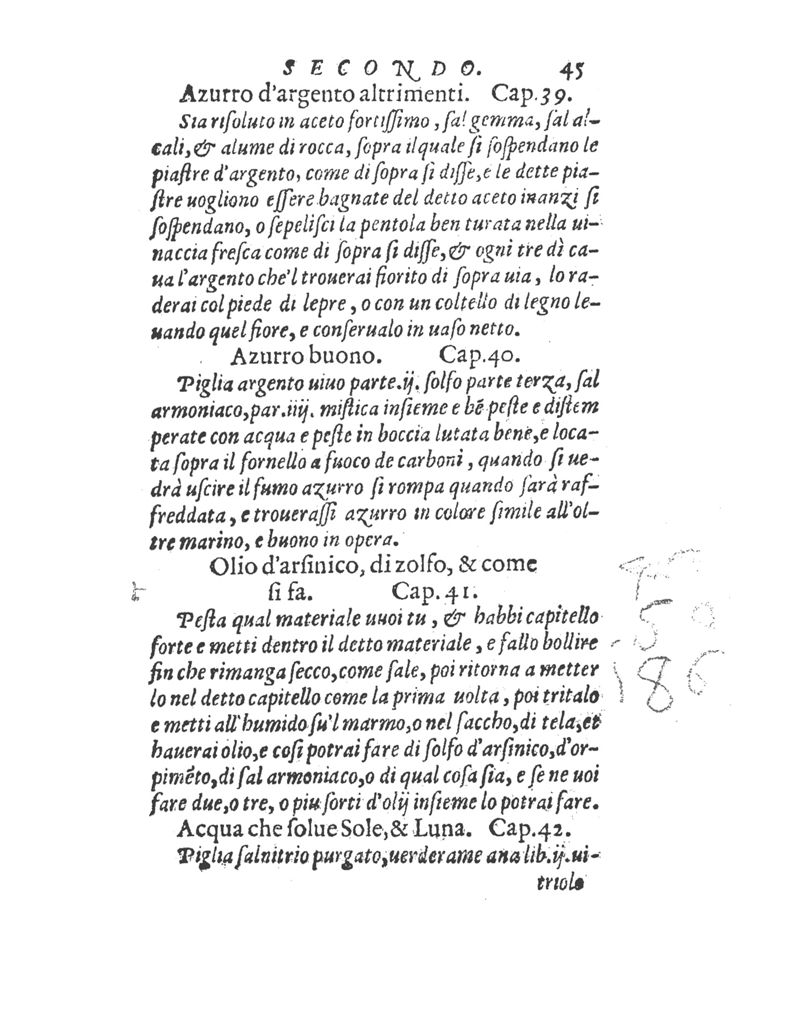 SECONDO. 45
Azurro d'argento altrimenti. Cap.39.
Sia risoluto in aceto fortissimo, sal gemma, sal al-
cali, & alume di rocca, sopra il quale si sospendano le
piastre d'argento, come di sopra si disse, e le dette pia-
stre uogliono essere bagnate del detto aceto inanzi si
sospendano, o sepelisci la pentola ben turata nella ui-
naccia fresca come di sopra si disse, & ogni tre dì ca-
ua l'argento che'l trouerai fiorito di sopra uia, lo ra-
derai col piede di lepre, o con un coltello di legno le-
uando quel fiore, e conserualo in uaso netto.
Azurro buono. Cap.40.
Piglia argento uiuo parte.ij. solfo parte terza, sal
armoniaco, par.iiij. mistica insieme e bẽ peste e distem
perate con acqua e peste in boccia lutata bene, e loca-
ta sopra il fornello a fuoco de carboni, quando si ue-
drà uscire il fumo azurro si rompa quando sarà raf-
freddata, e trouerassi azurro in colore simile all'ol-
tre marino, e buono in opera.
Olio d'arsinico, di zolfo, & come
si fa. Cap.41.
Pesta qual materiale uuoi tu, & habbi capitello
forte e metti dentro il detto materiale, e fallo bollire
fin che rimanga secco, come sale, poi ritorna a metter
lo nel detto capitello come la prima uolta, poi tritalo
e metti all'humido su'l marmo, o nel saccho, di tela, et
hauerai olio, e cosi potrai fare di solfo d'arsinico, d'or-
pimẽto, di sal armoniaco, o di qual cosa sia, e se ne uoi
fare due, o tre, o piu sorti d'olij insieme lo potrai fare.
Acqua che solue Sole, & Luna. Cap.42.
Piglia salnitrio purgato, uerderame ana lib.ij. ui-
triolo
50
186